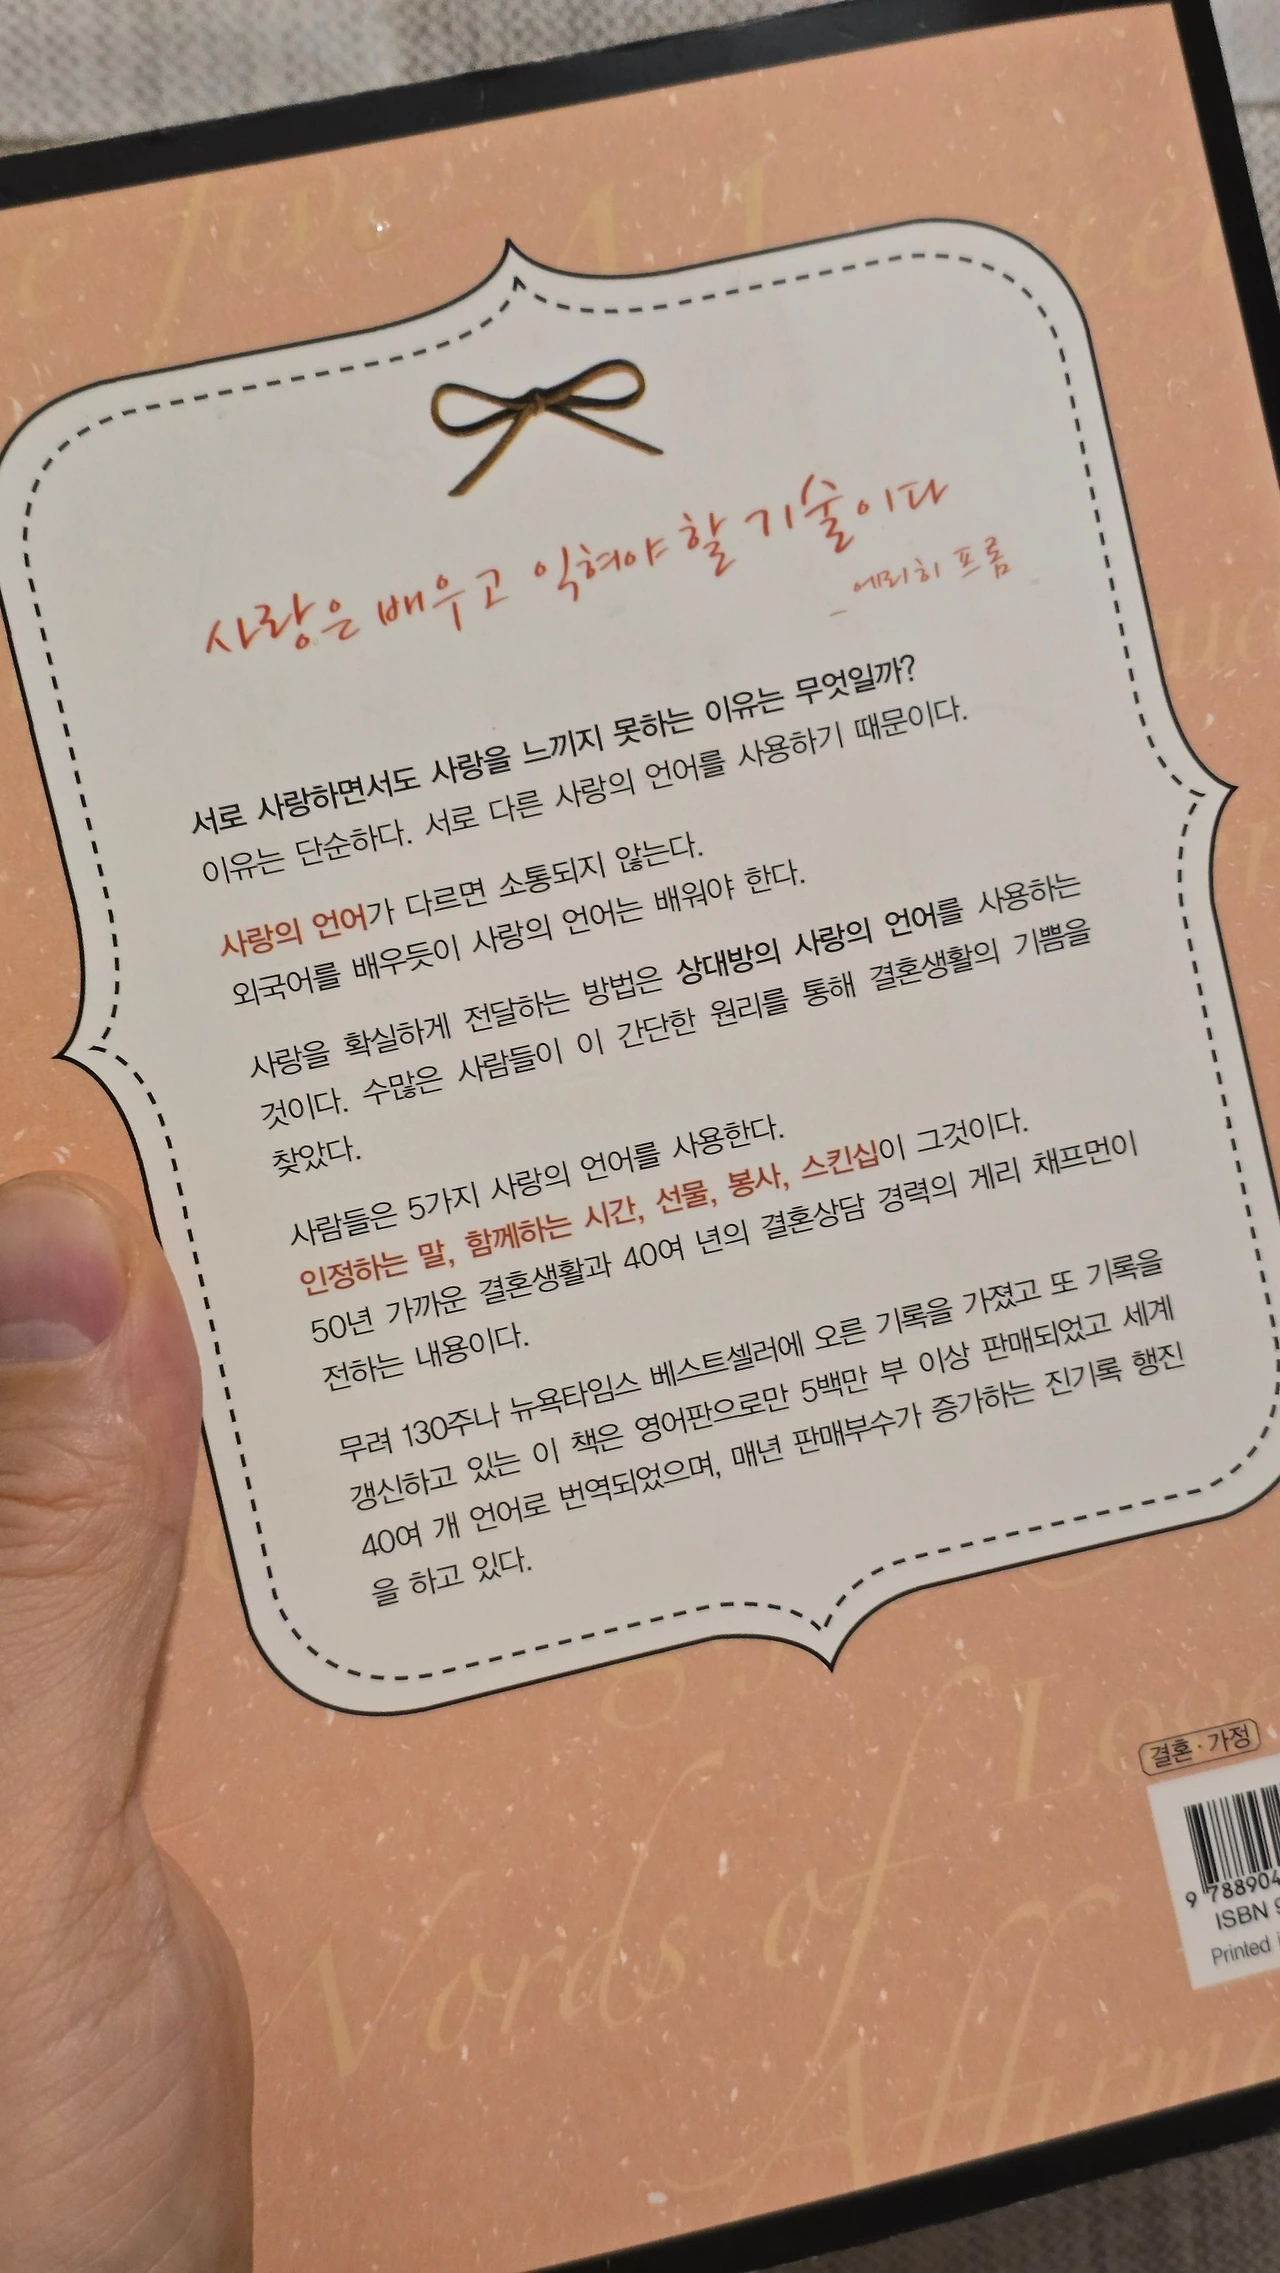 사랑은 배우고 익혀야 할 기술이다
_ 에리히 프롬
서로 사랑하면서도 사랑을 느끼지 못하는 이유는 무엇일까?
이유는 단순하다. 서로 다른 사랑의 언어를 사용하기 때문이다.
사랑의 언어가 다르면 소통되지 않는다.
외국어를 배우듯이 사랑의 언어는 배워야 한다.
사랑을 확실하게 전달하는 방법은 상대방의 사랑의 언어를 사용하는
것이다. 수많은 사람들이 이 간단한 원리를 통해 결혼생활의 기쁨을
찾았다.
사람들은 5가지 사랑의 언어를 사용한다.
인정하는 말, 함께하는 시간, 선물, 봉사, 스킨십이 그것이다.
50년 가까운 결혼생활과 40여 년의 결혼상담 경력의 게리 채프먼이
전하는 내용이다.
무려 130주나 뉴욕타임스 베스트셀러에 오른 기록을 가졌고 또 기록을
갱신하고 있는 이 책은 영어판으로만 5백만 부 이상 판매되었고 세계
40여 개 언어로 번역되었으며, 매년 판매부수가 증가하는 진기록 행진
을 하고 있다.
Love
결혼·가정
9 788904
ISBN 9
Printed
Words of
Affirm